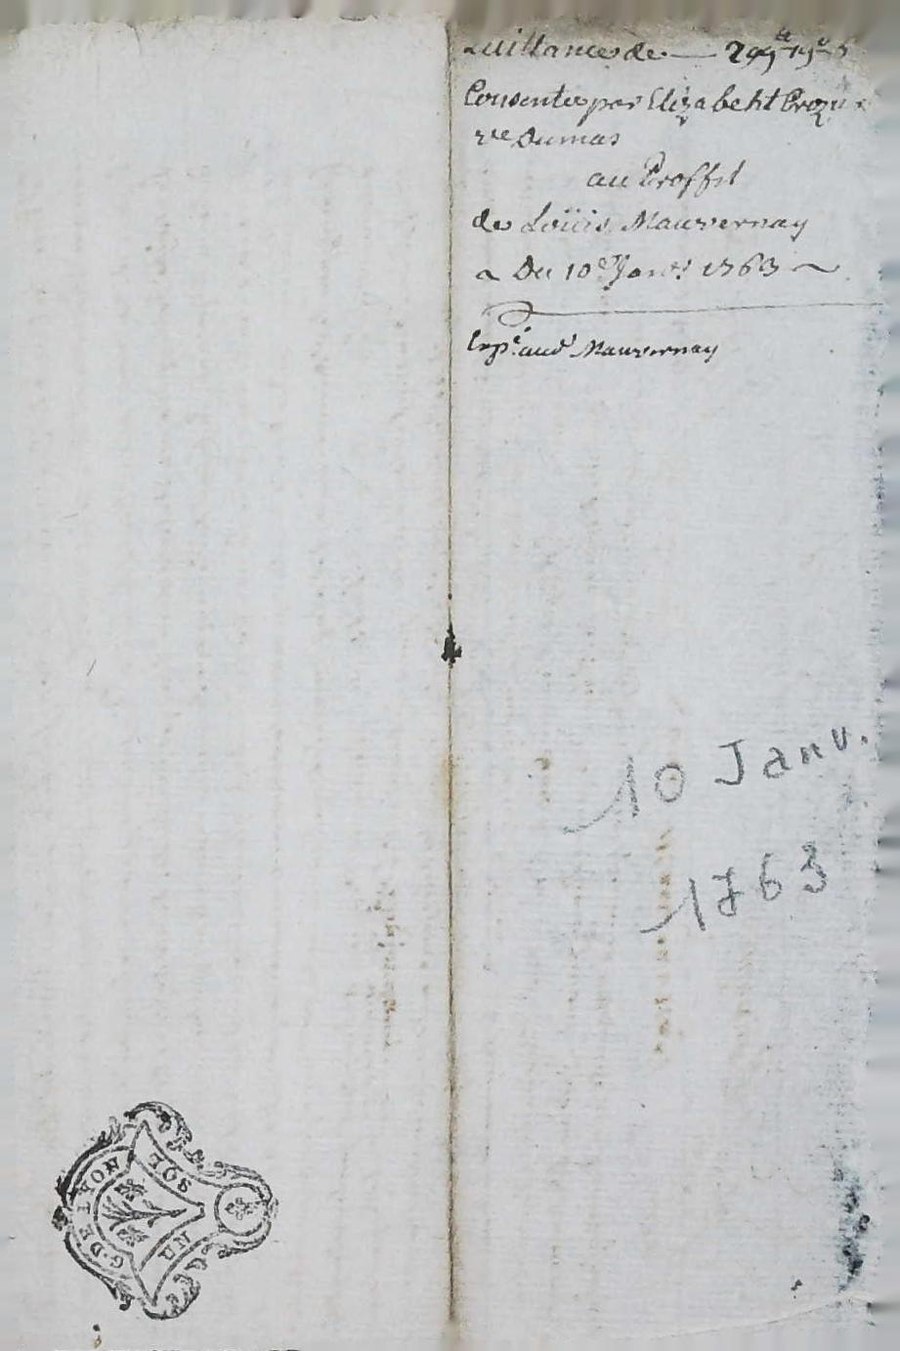 Quittance de — 299ᵗᵗ 19ˢ
Consentie par Elizabeht Crozu
vᵉ Dumas
au Proffit
de Loüis Mauvernay
Du 10ᵉ Janvʳ 1763
Expᵉ. audᵗ Mauvernay
10 Janv.
1763
G. DE LYON
UN SOL